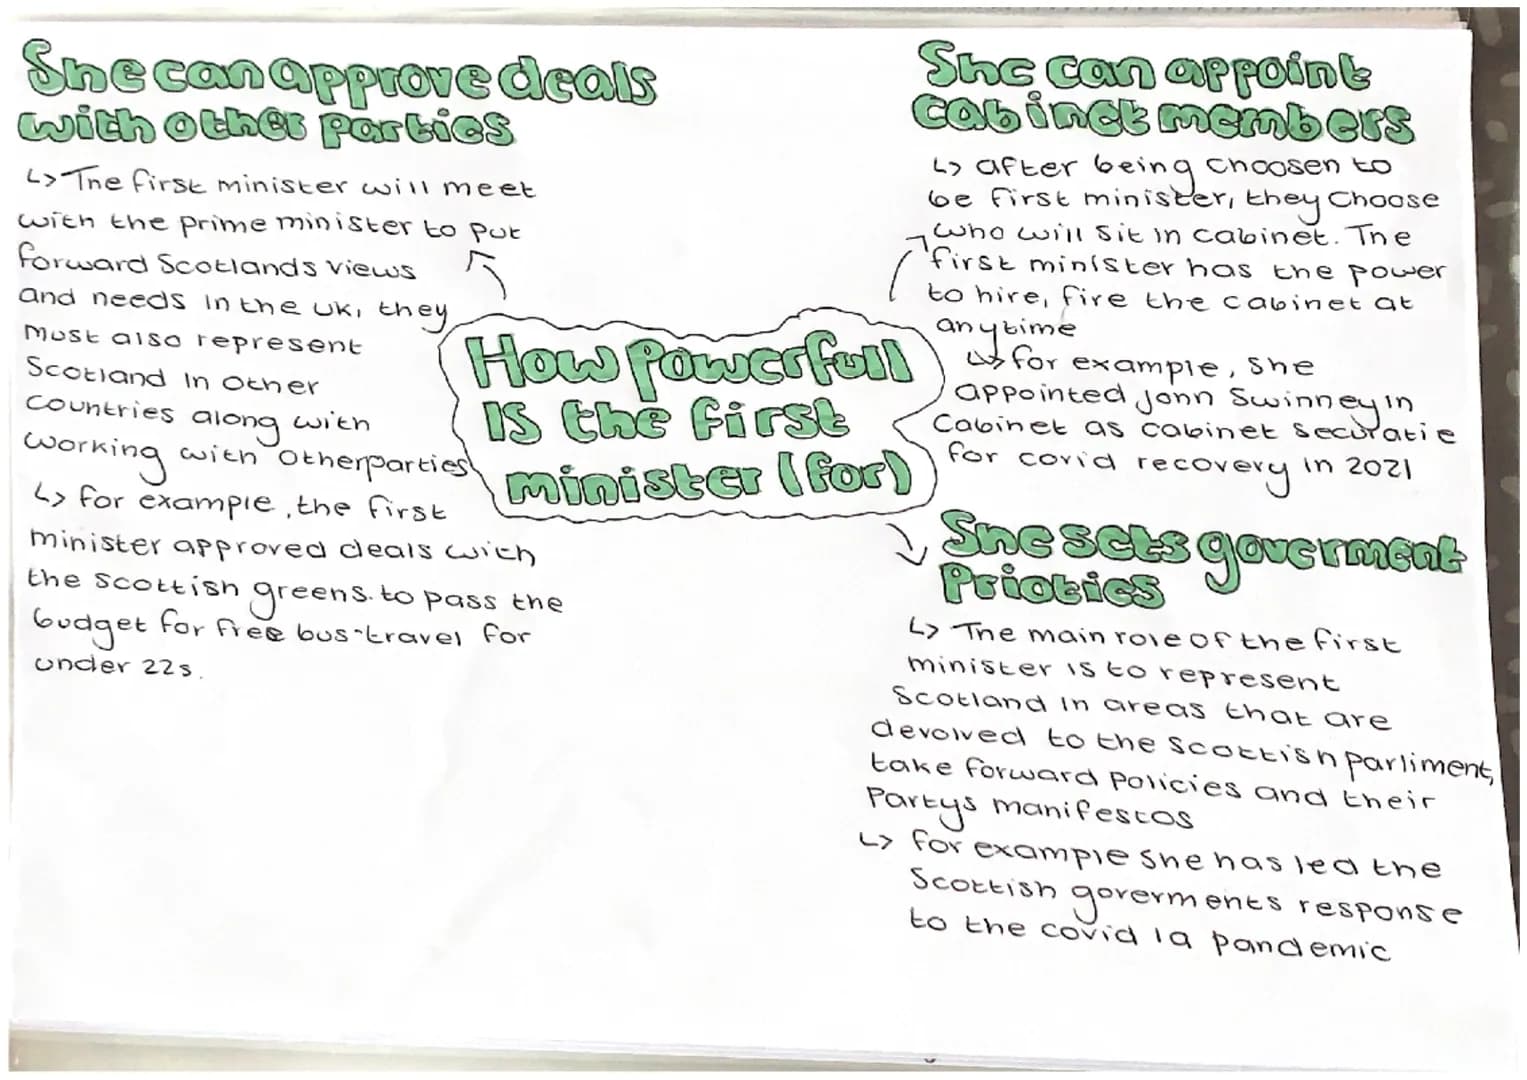 She can approve deals
with other parties
↳ The first minister will meet
with the prime minister to put
forward Scotlands views
and needs in the uk, they
must also represent
Scotland in other
countries along with
working with otherparties
↳ for example, the first
minister approved deals with
the scottish greens. to pass the
budget for free bus-travel for
under 22s.
How powerfull
is the first
minister (for)
She can appoint
cabinet members
↳ after being choosen to
be first minister, they choose
who will sit in cabinet. The
first minister has the power
to hire, fire the cabinet at
anytime
↳ for example, she
appointed John Swinney in
Cabinet as cabinet securatie
for covid recovery in 2021
She sets goverment
Prioties
↳ The main role of the first
minister is to represent
Scotland in areas that are
devolved to the scottish parliment,
take forward policies and their
Partys manifestos
↳ for example she has led the
Scottish goverments response
to the covid 19 pandemic